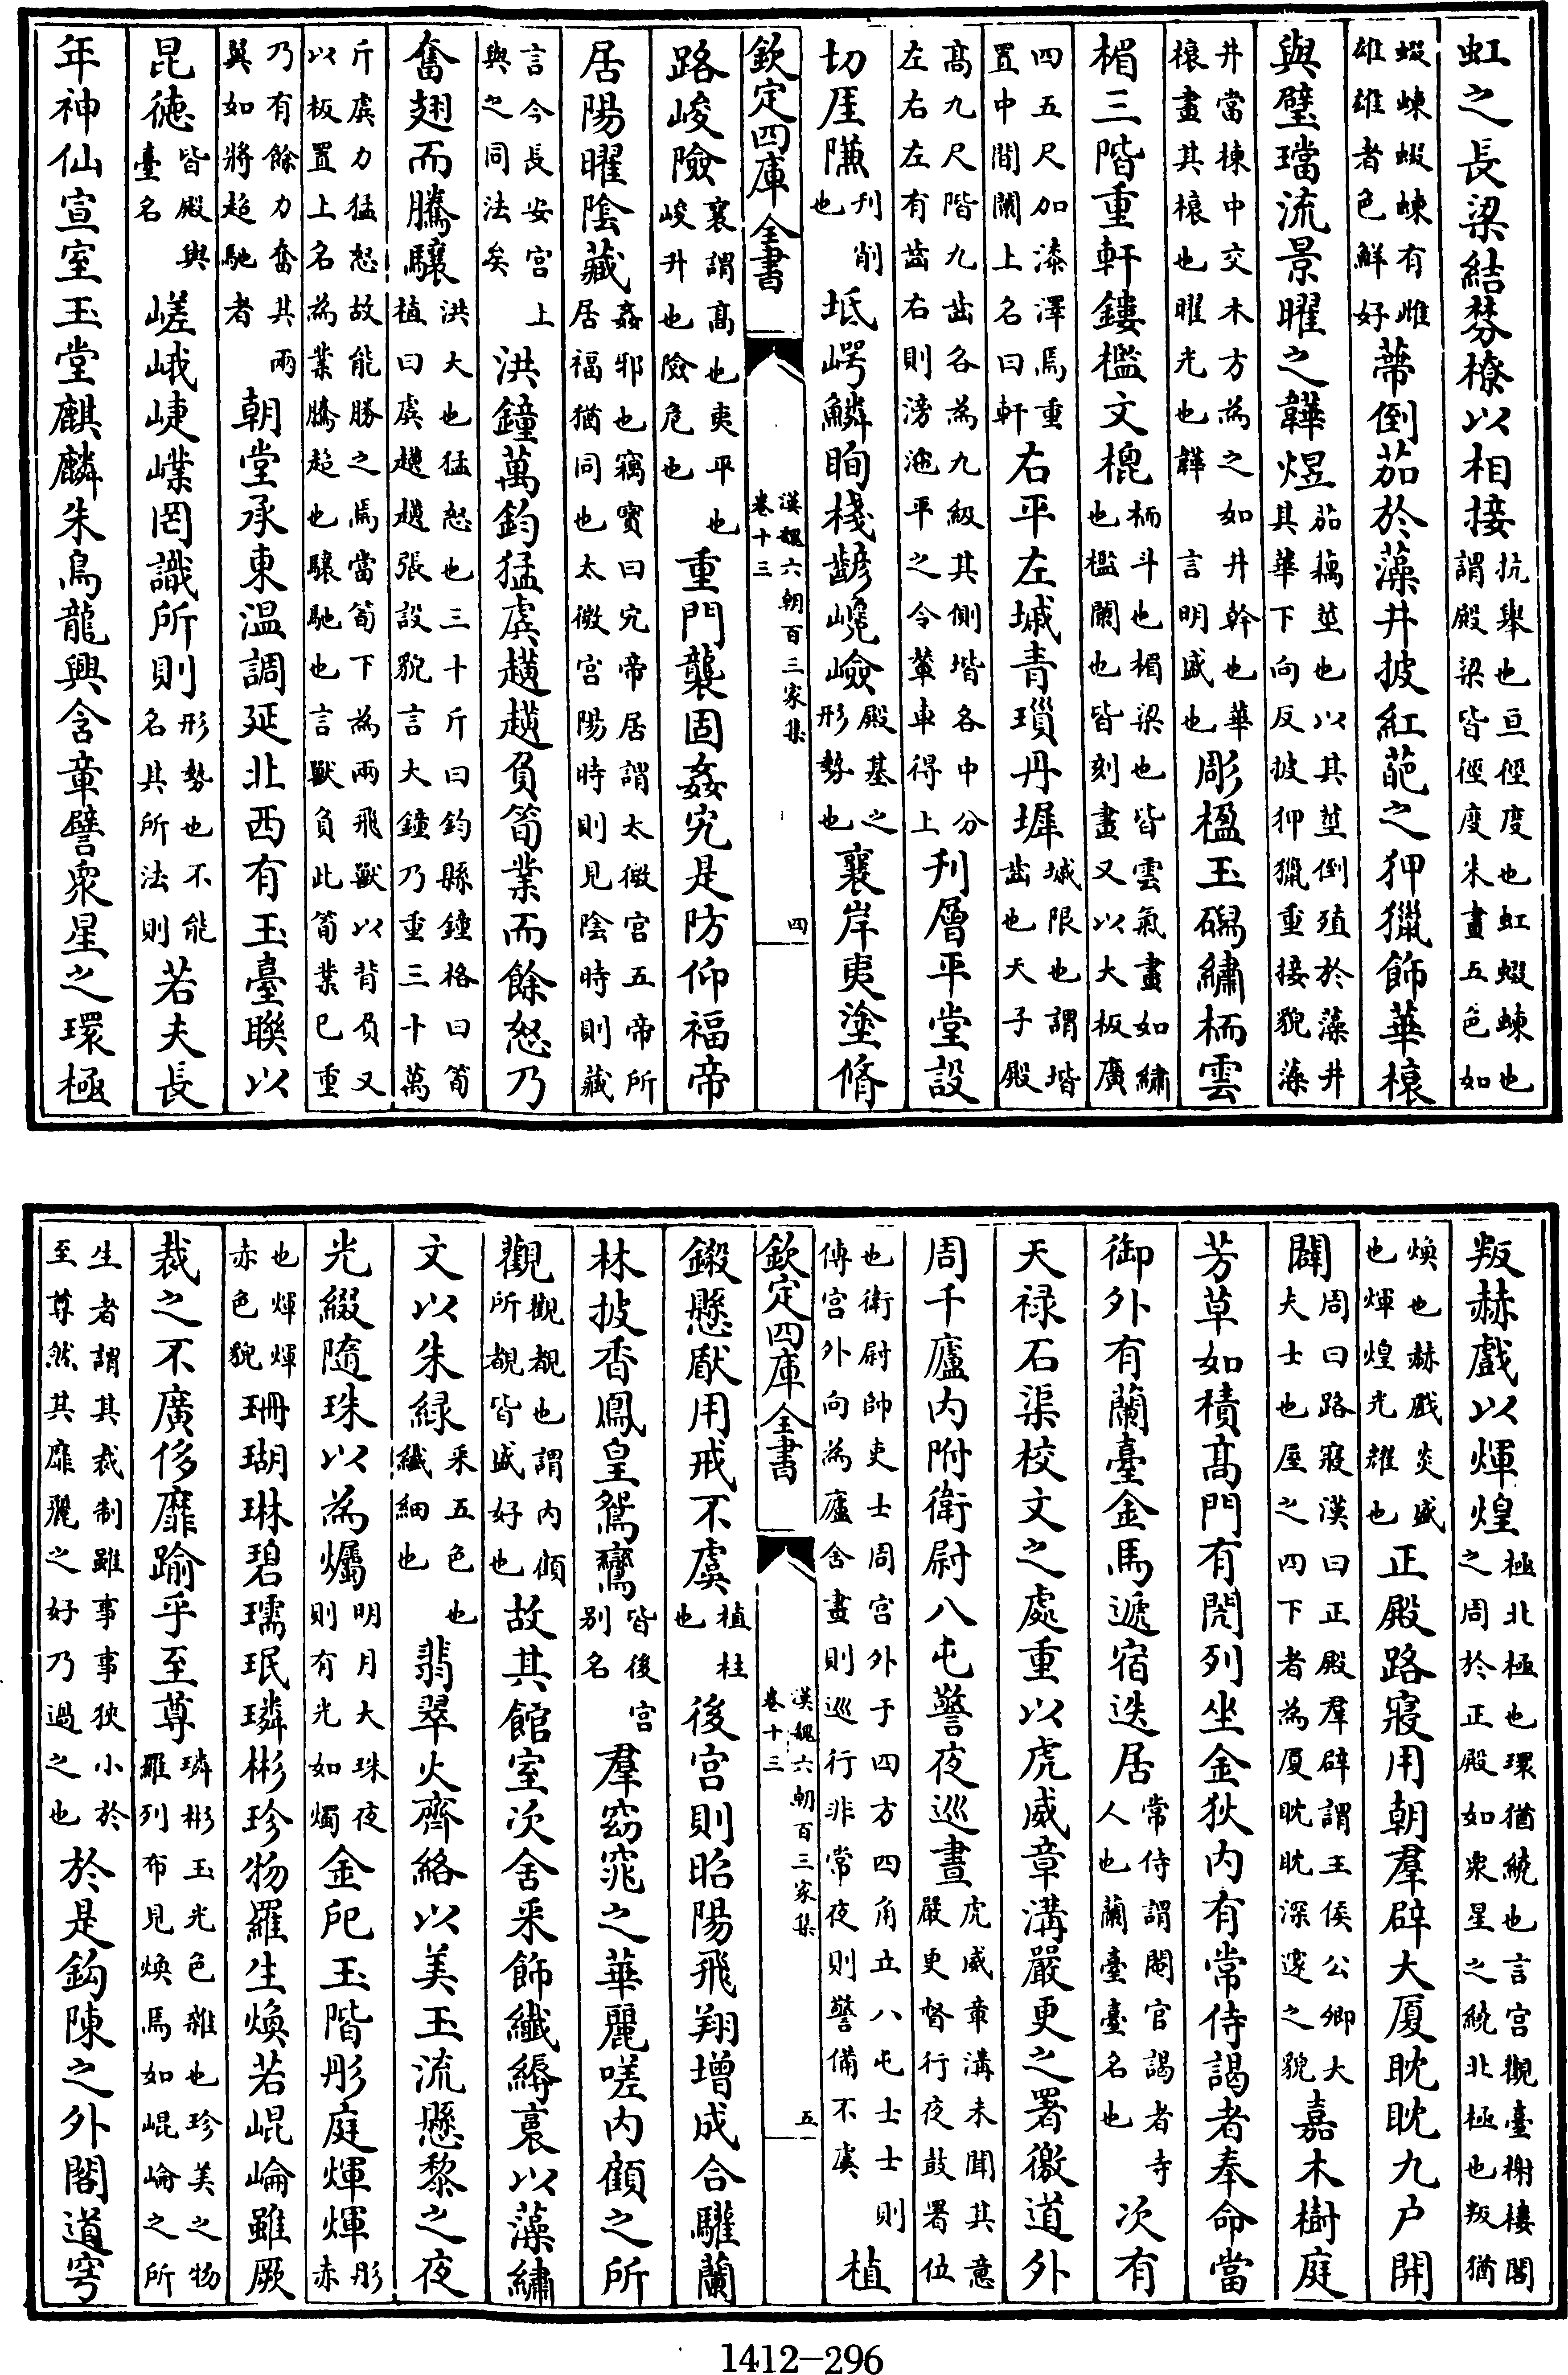 虹之長梁結棼橑以相接抗舉也亘徑度也虹蝃蝀也謂殿梁皆徑度朱畫五色如
蝃蝀蝃蝀有雌雄雄者色鮮好蔕倒茄於藻井披紅葩之狎獵飾華榱
與璧璫流景曜之韡煜茄藕莖也以其莖倒殖於藻井其華下向反披狎獵重接貌藻
井當棟中交木方為之如井幹也華榱畫其榱也曜光也韡言明盛也彫楹玉磶繡栭雲
楣三階重軒鏤檻文㮰栭斗也楣梁也皆雲氣畫如繡也檻闌也皆刻畫又以大板廣
四五尺加漆澤焉重置中間闌上名曰軒右平左墄青瑣丹墀墄限也謂堦齒也天子殿
高九尺階九齒各為九級其側堦各中分左右左有齒右則滂沲平之令輦車得上刋層平堂設
切厓隒刋削也坻崿鱗眴棧齴巉嶮殿基之形勢也襄岸夷塗脩
欽定四庫全書
漢魏六朝百三家集
卷十三
四
路峻險襄謂高也夷平也峻升也險危也重門襲固姦宄是防仰福帝
居陽曜陰藏姦邪也竊寶曰宄帝居謂太微宮五帝所居福猶同也太微宮陽時則見陰時則藏
言今長安宮上與之同法矣洪鐘萬鈞猛虡趪趪負筍業而餘怒乃
奮翅而騰驤洪大也猛怒也三十斤曰鈞縣鐘格曰筍植曰虡趪趪張設貌言大鐘乃重三十萬
斤虡力猛怒故能勝之焉當筍下為兩飛獸以背負又以板置上名為業騰超也驤馳也言獸負此筍業已重
乃有餘力奮其兩翼如將超馳者朝堂承東溫調延北西有玉臺聯以
昆德皆殿與臺名嵯峨崨嶫罔識所則形勢也不能名其所法則若夫長
年神仙宣室玉堂麒麟朱鳥龍興含章譬衆星之環極
叛赫戲以煇煌極北極也環猶繞也言宮觀臺榭樓閣之周於正殿如衆星之繞北極也叛猶
煥也赫戲炎盛也煇煌光耀也正殿路寢用朝羣辟大厦耽耽九户開
闢周曰路寢漢曰正殿羣辟謂王侯公卿大夫士也屋之四下者為厦耽耽深邃之貌嘉木樹庭
芳草如積高門有閌列坐金狄内有常侍謁者奉命當
御外有蘭臺金馬遞宿迭居常侍謂閹官謁者寺人也蘭臺臺名也次有
天禄石渠校文之處重以虎威章溝嚴更之署徼道外
周千廬内附衛尉八屯警夜巡晝虎威章溝未聞其意嚴更督行夜鼓署伍
也衛尉帥吏士周宮外于四方四角立八屯士士則傅宮外向為廬舍晝則巡行非常夜則警備不虞植
欽定四庫全書
漢魏六朝百三家集
卷十三
五
鎩懸瞂用戒不虞植柱也後宮則昭陽飛翔增成合驩蘭
林披香鳳皇鴛鸞皆後宮别名羣窈窕之華麗嗟内顧之所
觀觀覩也謂内傾所覩皆盛好也故其館室次舍采飾纖縟裛以藻繡
文以朱緑采五色也纖細也翡翠火齊絡以美玉流懸黎之夜
光綴隨珠以為爥明月大珠夜則有光如燭金戺玉階彤庭煇煇彤赤
也煇煇赤色貌珊瑚琳碧瓀珉璘彬珍物羅生煥若崐崘雖厥
裁之不廣侈靡踰乎至尊璘彬玉光色雜也珍美之物羅列布見煥焉如崐崘之所
生者謂其裁制雖事事狹小於至尊然其靡麗之好乃過之也於是鈎陳之外閣道穹
1412-296